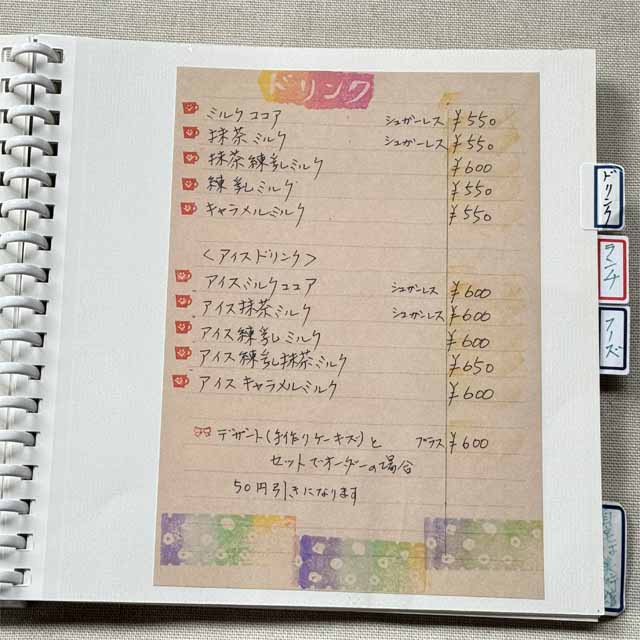 ドリンク
ミルクココア シュガーレス ¥550
抹茶ミルク シュガーレス ¥550
抹茶練乳ミルク ¥600
練乳ミルク ¥550
キャラメルミルク ¥550
〈アイスドリンク〉
アイスミルクココア シュガーレス ¥600
アイス抹茶ミルク シュガーレス ¥600
アイス練乳ミルク ¥600
アイス練乳抹茶ミルク ¥650
アイスキャラメルミルク ¥600
デザート(手作りケーキズ)と プラス ¥600
セットでオーダーの場合
50円引きになります
ドリンク
ランチ
フーズ